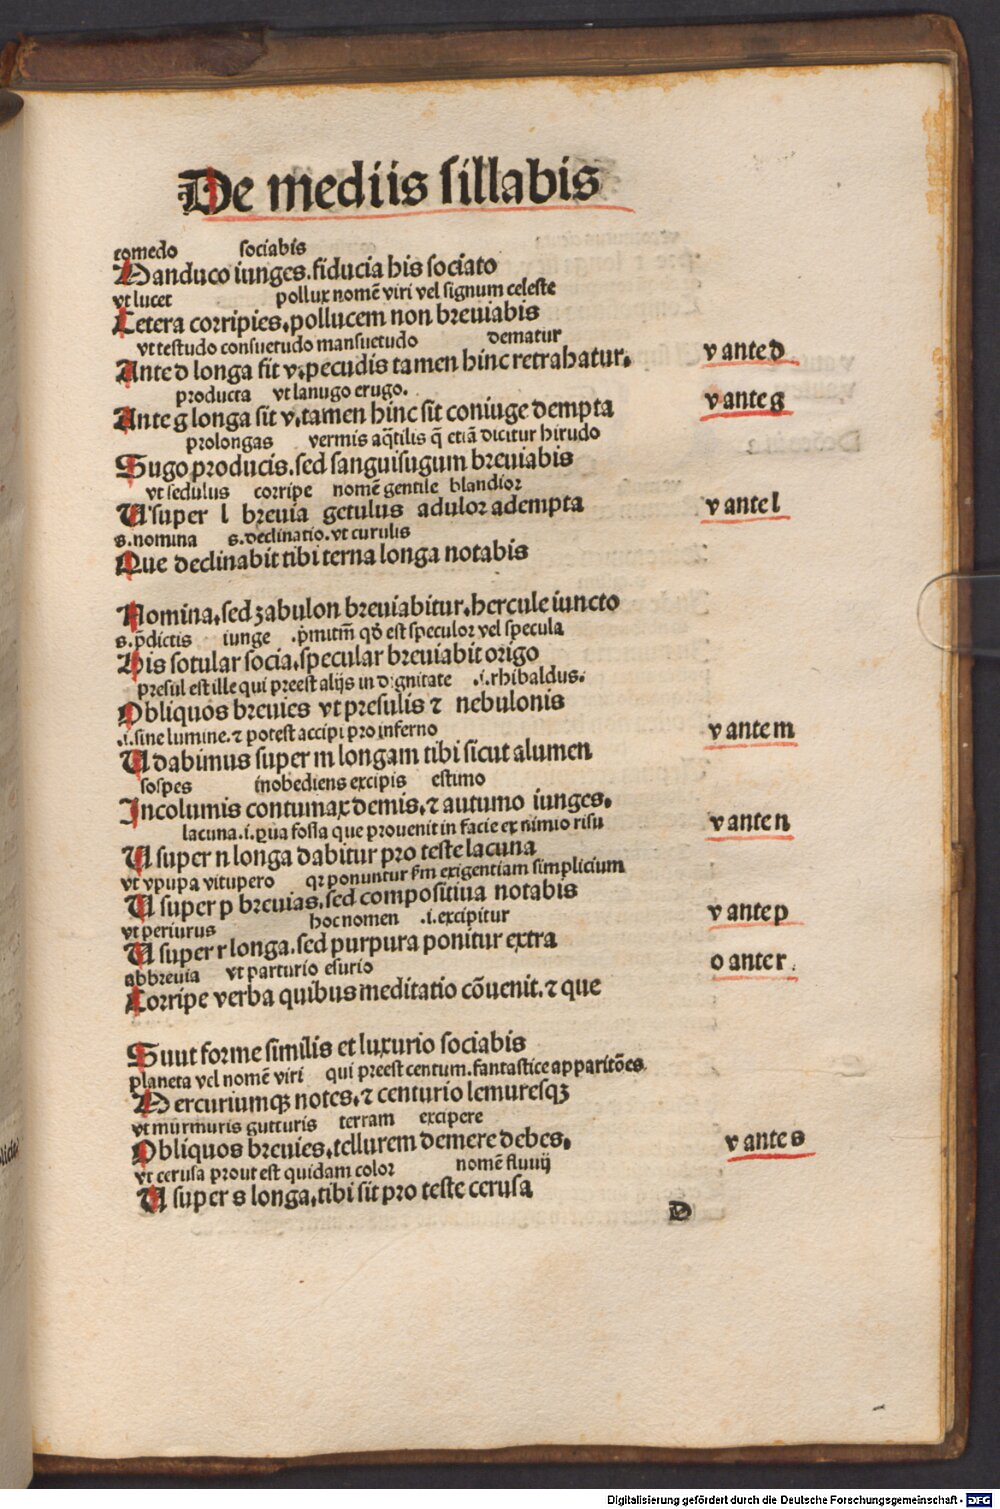 De mediis sillabis
comedo sociabis
Manduco iunges. fiducia his sociato
vt lucet pollux nomē viri vel signum celeste
Cetera corripies. pollucem non breuiabis
vt testudo consuetudo mansuetudo dematur
Ante d longa fit v. pecudis tamen hinc retrahatur.
v ante d
producta vt lanugo erugo.
Ante g longa sit v. tamen hinc sit coniuge dempta
v ante g
prolongas vermis aq̄tilis q̄ etiā dicitur hirudo
Sugo producis. sed sanguisugum breuiabis
vt sedulus corripe nomē gentile blandior
U super l breuia getulus adulor adempta
v ante l
s. nomina s. declinatio. vt curulis
Que declinabit tibi terna longa notabis
Nomina. sed zabulon breuiabitur. hercule iuncto
s. p̄dictis iunge .p̄mitm̄ qđ est speculor vel specula
His sotular socia. specular breuiabit origo
presul est ille qui preest alijs in dignitate .i. rhibaldus.
Obliquos breuies vt presulis ⁊ nebulonis
.i. sine lumine. ⁊ potest accipi pro inferno
U dabimus super m longam tibi sicut alumen
v ante m
sospes inobediens excipis estimo
Incolumis contumax demis. ⁊ autumo iunges.
lacuna .i. ꝑua fossa que prouenit in facie ex nimio risu
U super n longa dabitur pro teste lacuna
v ante n
vt vpupa vitupero qꝛ ponuntur ẜm exigentiam simplicium
U super p breuias. sed compositiua notabis
v ante p
vt periurus hoc nomen .i. excipitur
U super r longa. sed purpura ponitur extra
o ante r.
abbreuia vt parturio esurio
Corripe verba quibus meditatio cōuenit. ⁊ que
Suut forme similis et luxurio sociabis
planeta vel nomē viri qui preest centum. fantastice apparitōes
Mercuriumqꝫ notes. ⁊ centurio lemuresqꝫ
vt murmuris gutturis terram excipere
Obliquos breuies. tellurem demere debes.
v ante s
vt cerusa prout est quidam color nomē fluuij
U super s longa. tibi sit pro teste cerusa
D
Digitalisierung gefördert durch die Deutsche Forschungsgemeinschaft - DFG